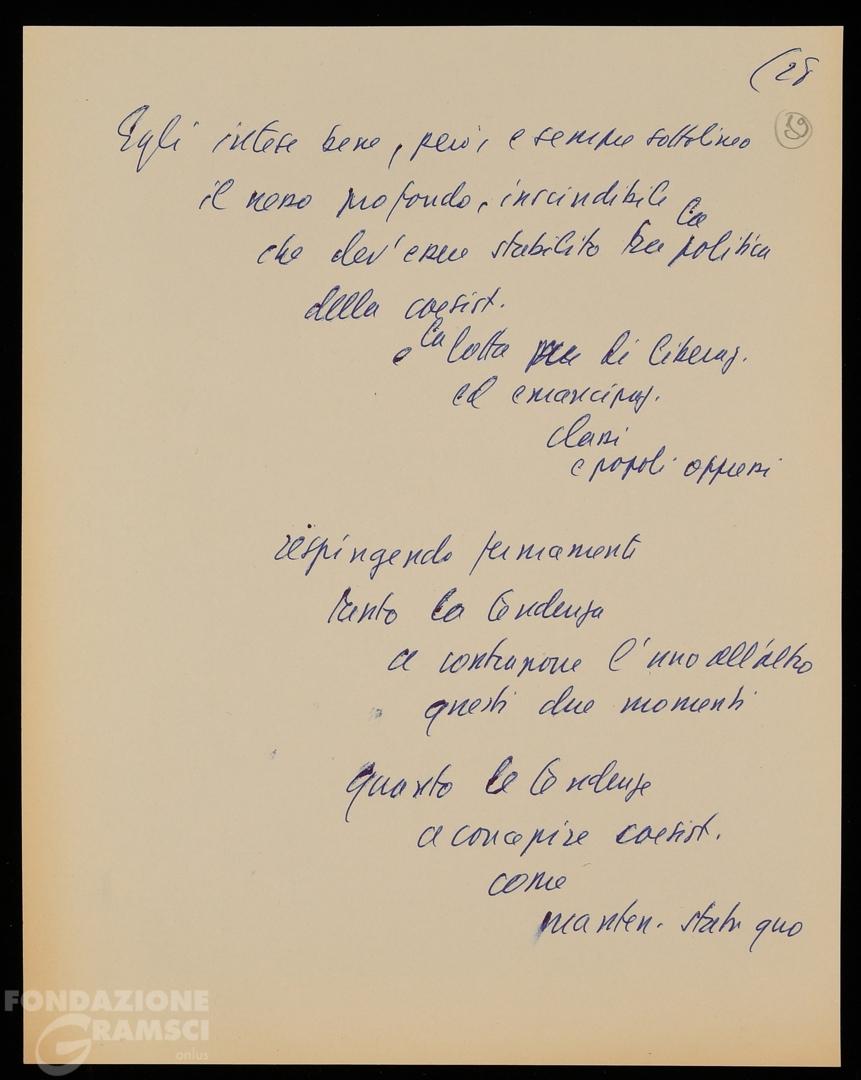 (28
59
Egli intese bene, però, e sempre sottolineò
il nesso profondo, inscindibile
che dev'essere stabilito tra la politica
della coesist.
e la lotta di liberaz.
ed emancipaz.
classi
e popoli oppressi
respingendo fermamente
tanto la tendenza
a contrapporre l'uno all'altro
questi due momenti
quanto la tendenza
a concepire coesist.
come
manten. status quo
FONDAZIONE
GRAMSCI
onlus